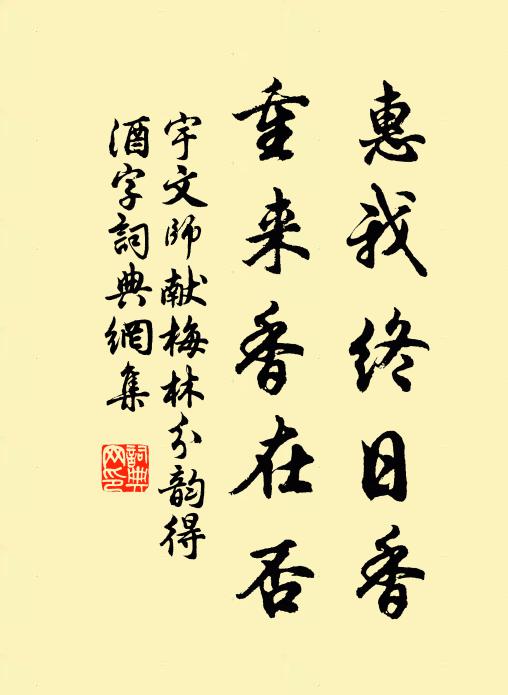 惠我终日香
重来香在否
宇文师献梅林分韵得
酒字詞典網集
詞典
网印